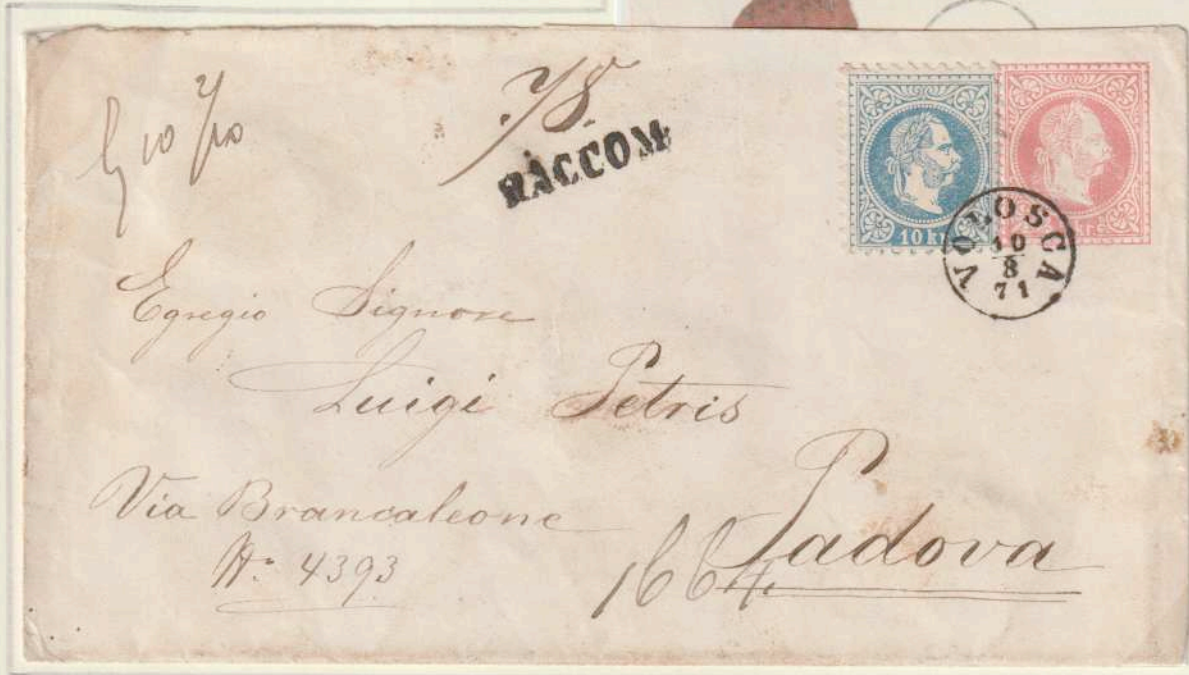 7/8
RACCOM
10 kr
VOLOSCA
10
8
71
Egregio Signore
Luigi Petris
Via Brancaleone
No 4393
Padova
1664